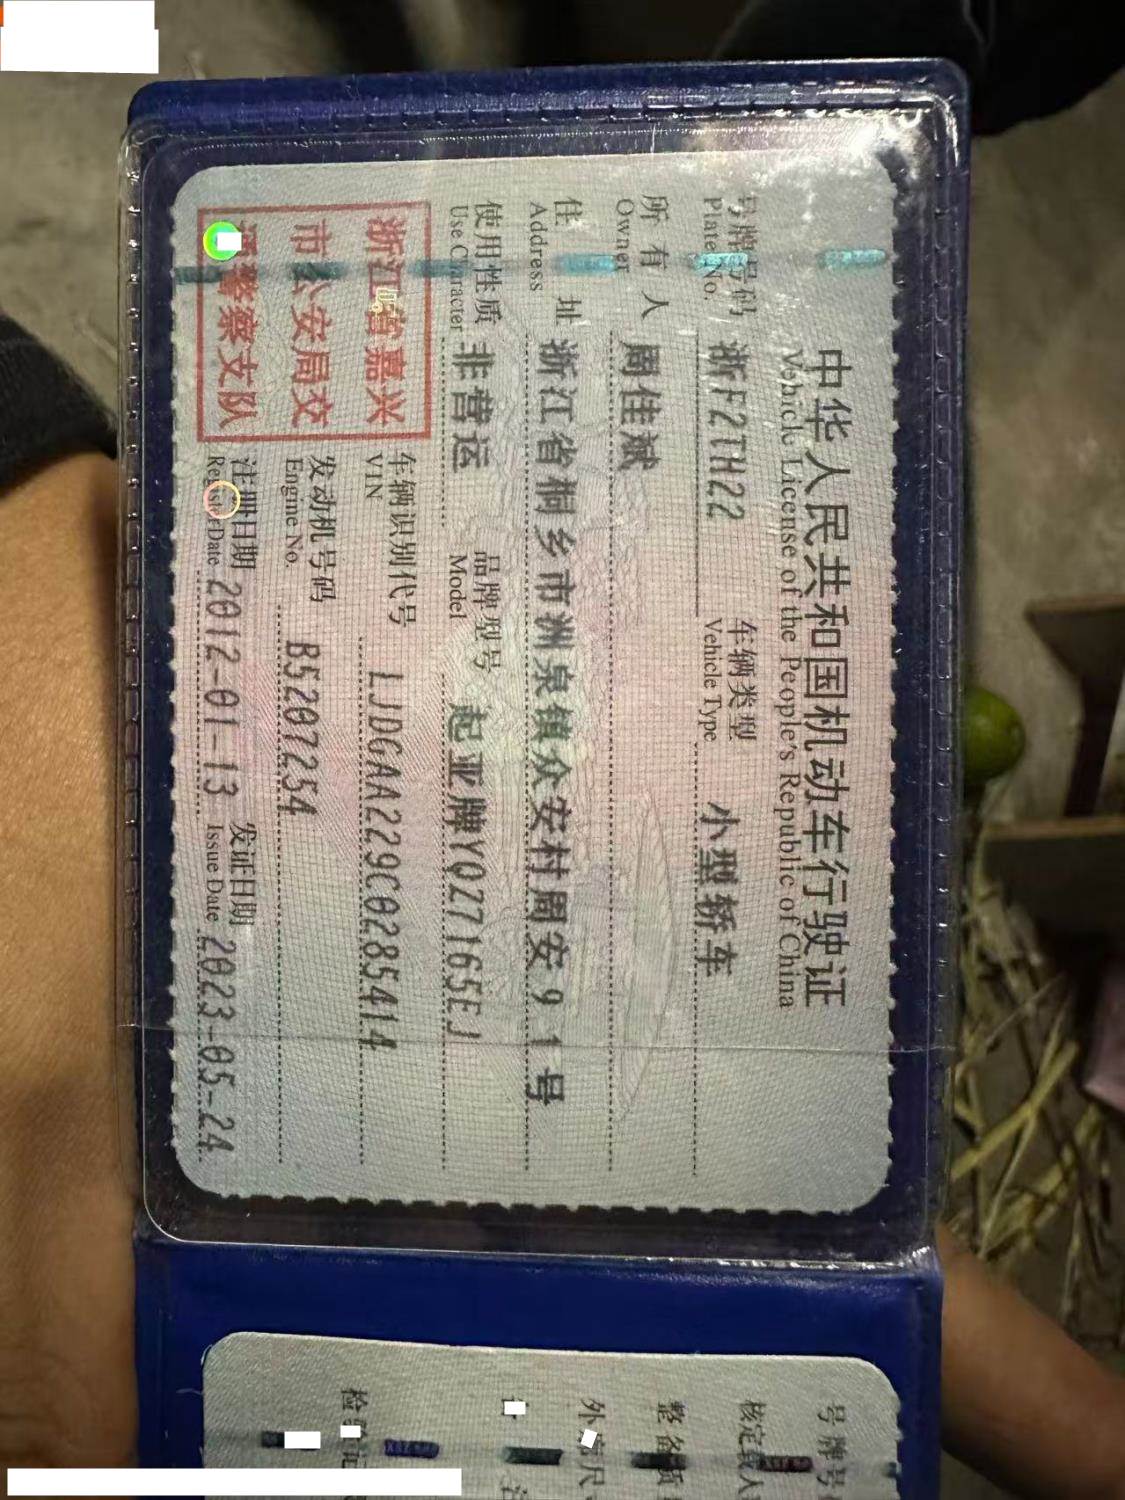 中华人民共和国机动车行驶证
Vehicle License of the People's Republic of China
号牌号码 浙F2TH22 车辆类型 小型轿车
Plate No. Vehicle Type
所有人 周佳斌
Owner
住址 浙江省桐乡市洲泉镇众安村周安91号
Address
使用性质 非营运 品牌型号 起亚牌YQZ7165EJ
Use Character Model
浙江省嘉兴
市公安局交
警察支队
车辆识别代号 LJDGAA229C0285414
VIN
发动机号码 B5207254
Engine No.
注册日期 2012-01-13 发证日期 2023-05-24
Register Date Issue Date
号牌号
核定载人
整备质
外
检